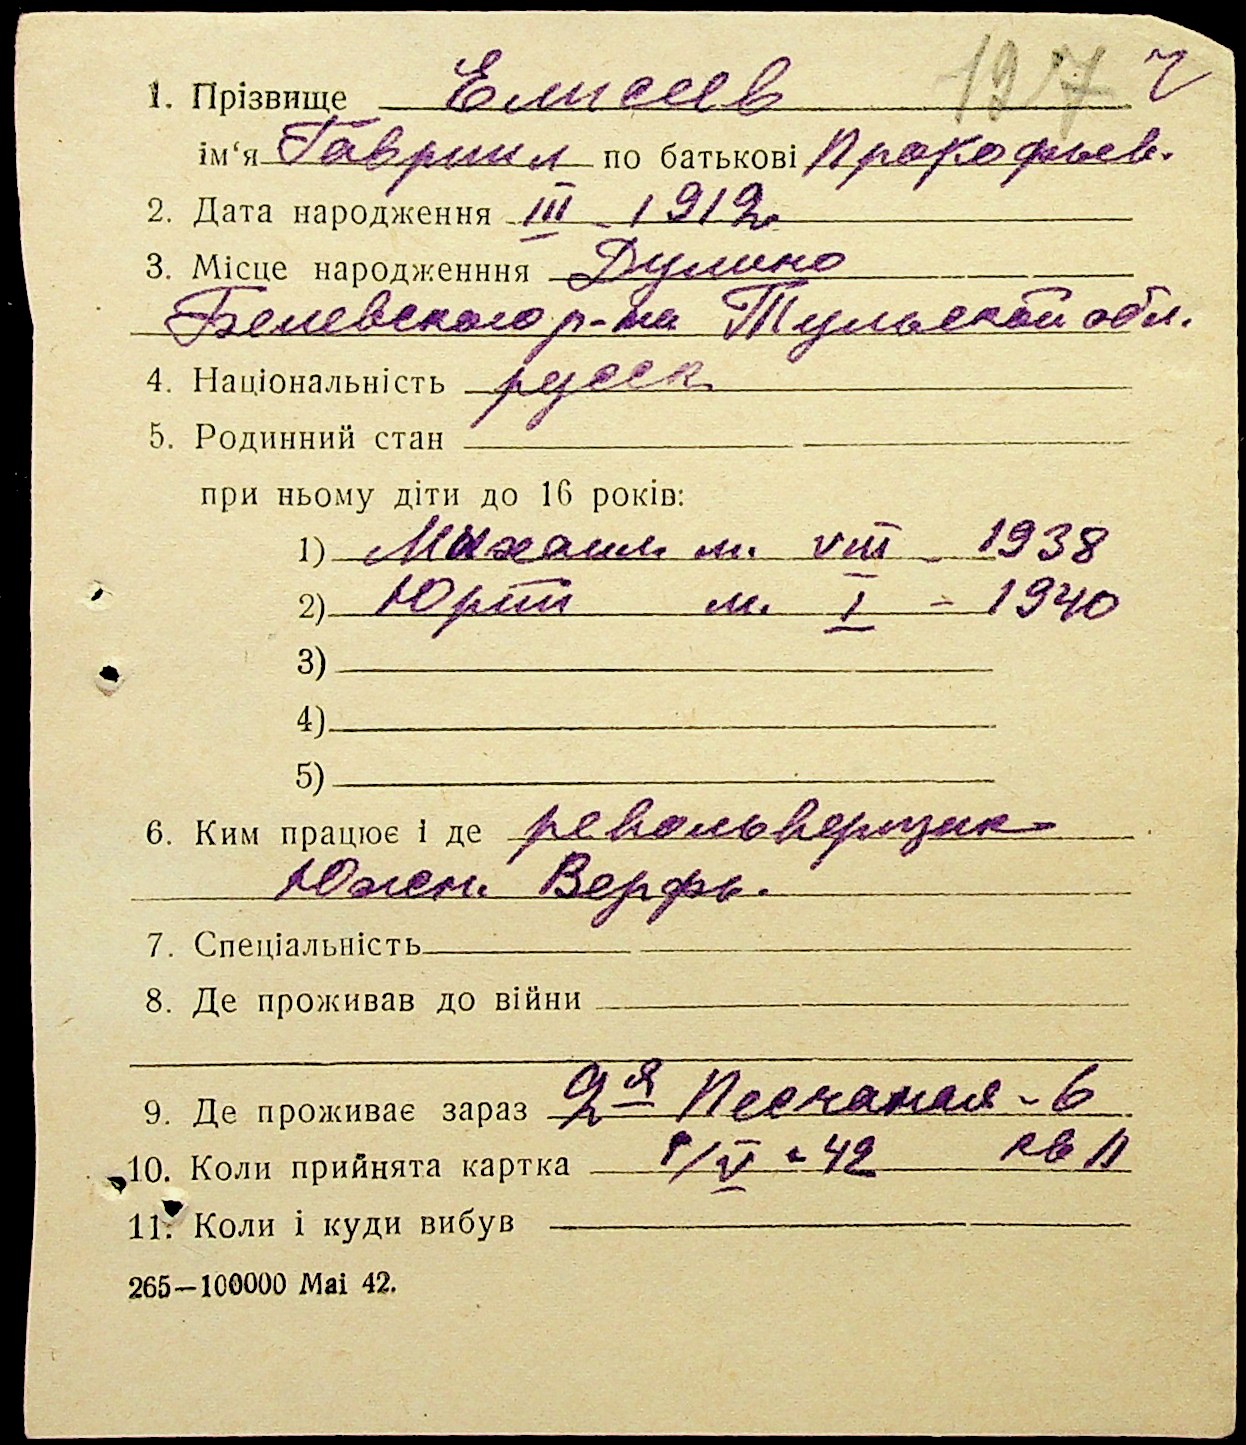 197 ч
1. Прізвище Елисеев
ім‘я Гавриил по батькові Прокофьев.
2. Дата народження III - 1912
3. Місце народженння Дулино
Белевского р-на Тульской обл.
4. Національність русск
5. Родинний стан
при ньому діти до 16 років:
1) Михаил м. VIII - 1938
2) Юрий м. I - 1940
3)
4)
5)
6. Ким працює і де револьверщик
Южн. Верфь.
7. Спеціальність
8. Де проживав до війни
9. Де проживає зараз 2я Песчаная - 6
10. Коли прийнята картка /V - 42 кв
11. Коли і куди вибув
265—100000 Mai 42.